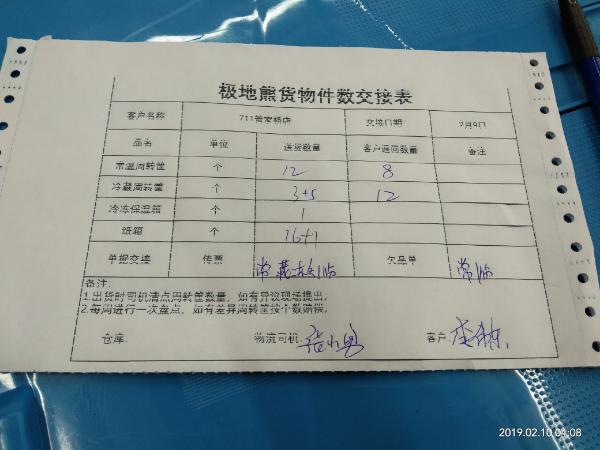 极地熊货物件数交接表
客户名称 711管家桥店 交接日期 2月9日
品名 单位 送货数量 客户返回数量 备注
常温周转筐 个 12 8
冷藏周转筐 个 3+5 12
冷冻保温箱 个 1
纸箱 个 16+1
单据交接 传票 欠品单
备注:
1.出货时司机清点周转筐数量,如有异议现场提出,
2.每周进行一次盘点,如有差异周转筐按个数赔偿,
仓库: 物流司机: 客户
2019.02.10 04:08